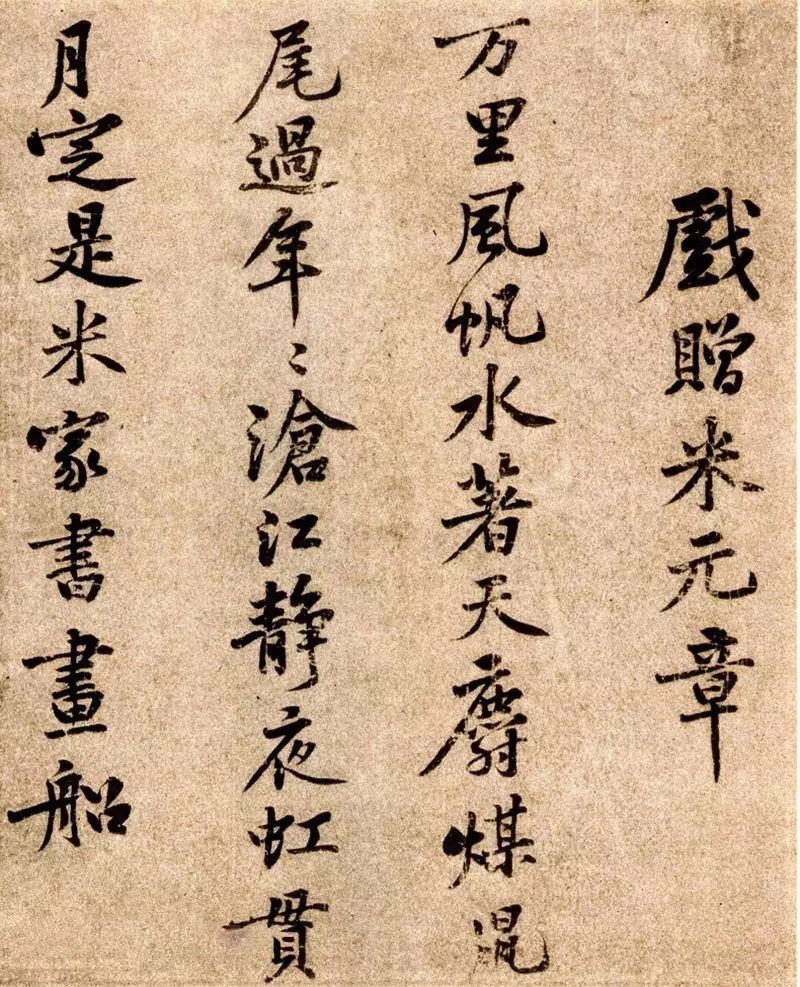 戲贈米元章
万里風帆水著天麝煤鼠
尾過年〻滄江静夜虹貫
月定是米家書畫船